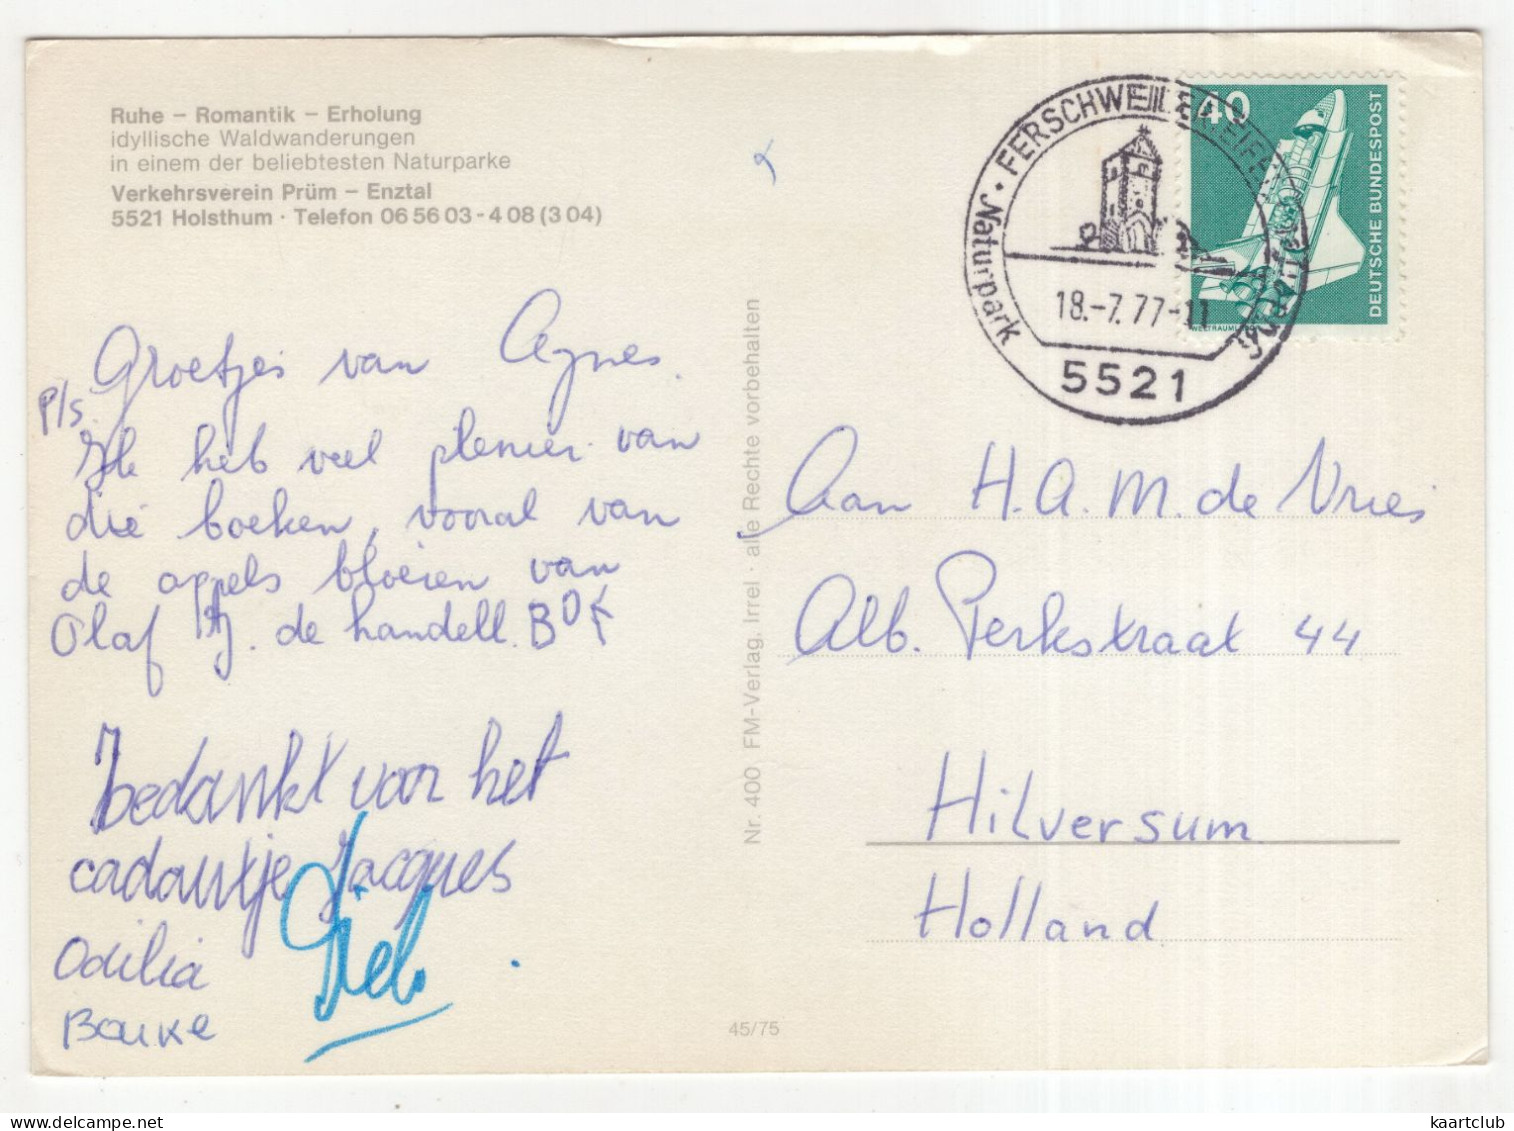 Ruhe – Romantik – Erholung
idyllische Waldwanderungen
in einem der beliebtesten Naturparke
Verkehrsverein Prüm – Enztal
5521 Holsthum · Telefon 06 56 03 - 4 08 (3 04)
Groetjes van Agnes.
P/s.
Ik heb veel plezier van
die boeken, vooral van
de appels bloeien van
Olaf J. de handell.
bedankt voor het
cadautje Jacques
Odilia
Bauke
Nr. 400 FM-Verlag, Irrel · alle Rechte vorbehalten
45/75
· FERSCHWEILER, EIFEL ·
Naturpark
18.-7.77-11
5521
40
DEUTSCHE BUNDESPOST
Aan H.A.M. de Vries
Alb. Perkstraat 44
Hilversum
Holland
kaartclub